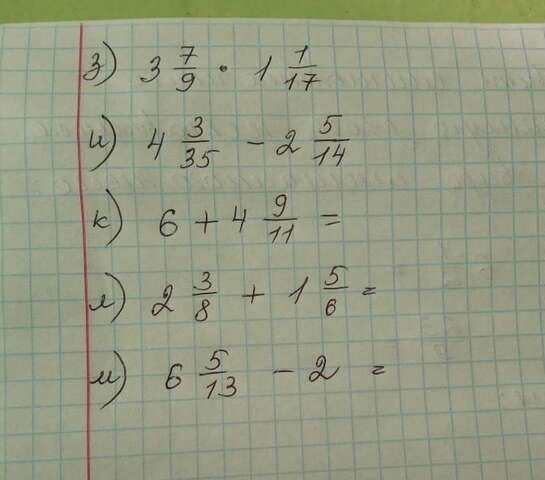 з) 3 7/9 · 1 1/17
и) 4 3/35 - 2 5/14
к) 6 + 4 9/11 =
л) 2 3/8 + 1 5/6 =
м) 6 5/13 - 2 =